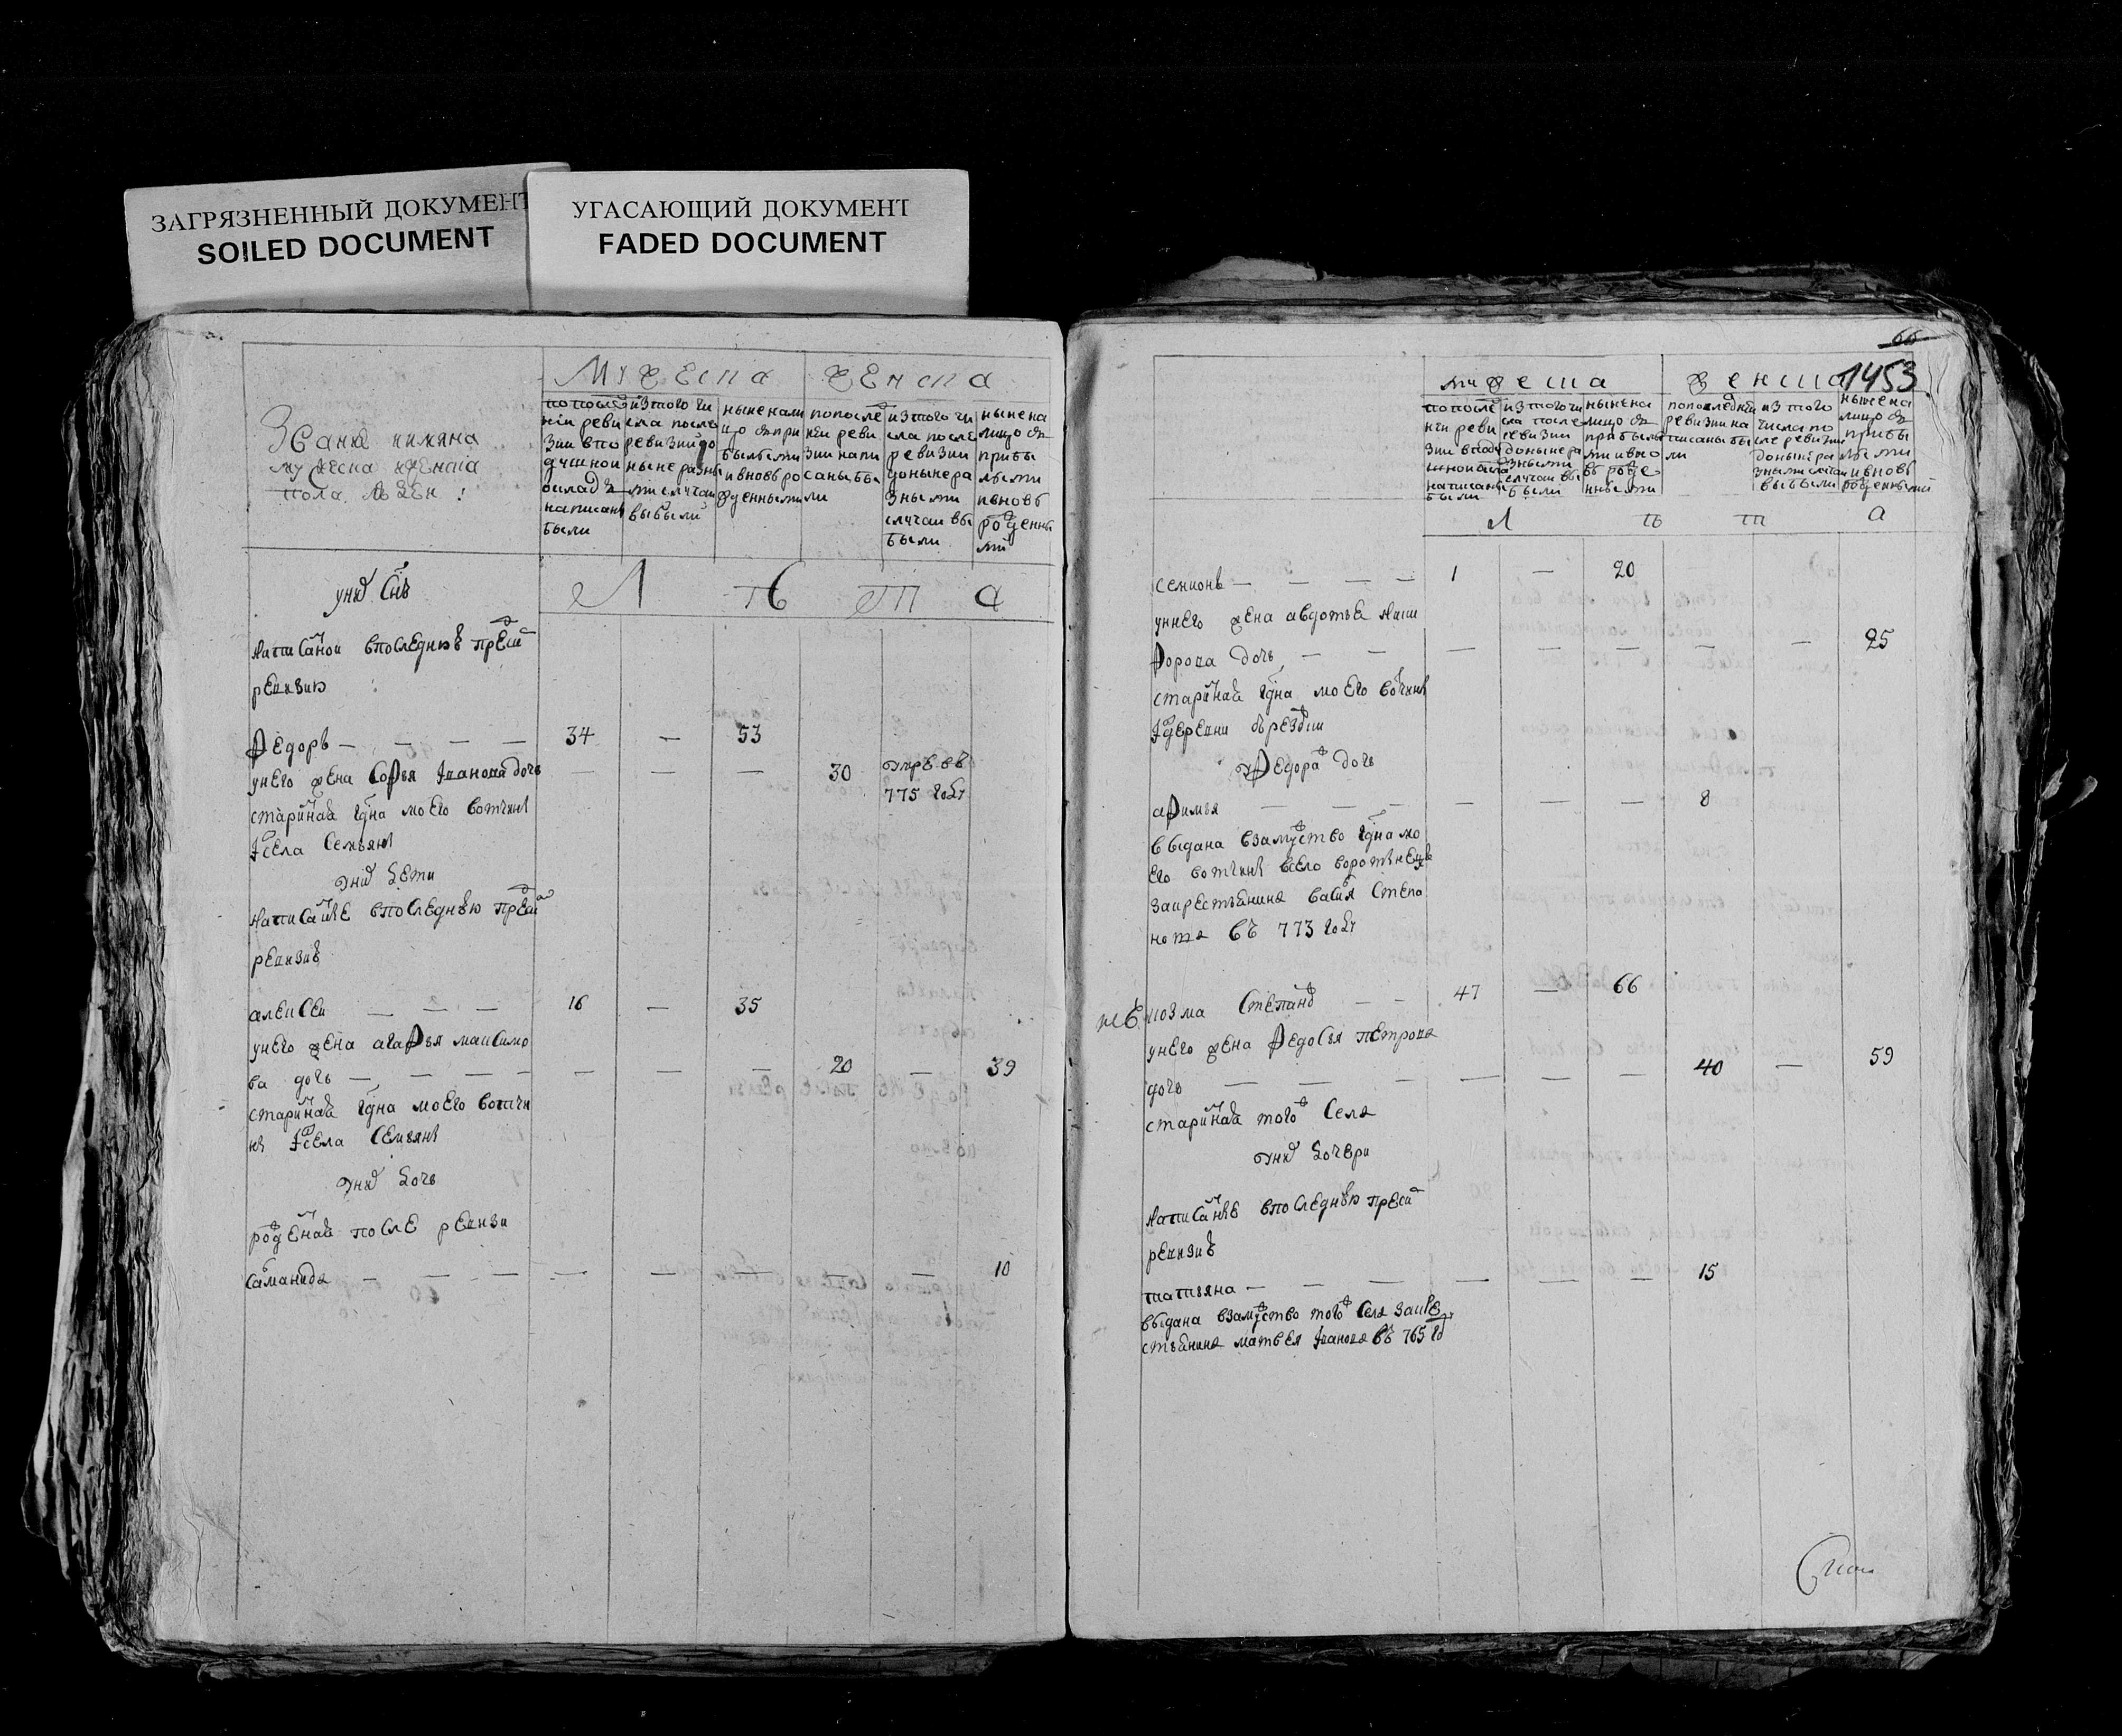 ЗАГРЯЗНЕННЫЙ ДОКУМЕНТ
SOILED DOCUMENT
УГАСАЮЩИЙ ДОКУМЕНТ
FADED DOCUMENT
Мужеска женска
Звания имяна
мужеска женска
пола людей
по после
ней реви
зии в по
душной
оклад
написаны
были
из того чи
сла после
ревизии до
ныне разны
ми случаи
выбыли
ныне нали
цо с при
былыми
и вновь ро
жденными
по после
ней реви
зии напи
саны бы
ли
из того чи
сла после
ревизии
доныне ра
зными
случаи вы
были
ныне на
лицо с
прибы
лыми
и вновь
рожденны
ми
Л ѣ т а
у них снъ
написаной в последнюю пред
ревизию
Федоръ — — — — 34 — 53
у него жена Софья Iванова дочь — — — 30 умре въ
775 году
стариная гдна моего вотчины
села Семьяни
у них дети
написаные в последнюю пред
ревизию
алексеи — — — 16 — 35
у него жена агафья максимо
ва дочь — — — — — — — 20 — 39
стариная гдна моего вотчи
ны села Семьяни
у них дочь
рожденая после ревизи
Саманида — — — — — — — 10
66
1453
мужеска женска
по после
ней реви
написаны
были
из того чи
сла после
ревизии
доныне ра
зными
случаи вы
были
ныне на
лицо с
прибылы
ми и вно
вь рожде
нными
по последней
ревизии на
писаны бы
ли
из того
числа по
сле ревизии
доныне ра
зными случаи
выбыли
ныне на
лицо с
прибы
лыми
и вновь
рожденными
Л ѣ т а
семионъ — — — — 1 — 20
у него жена авдотья Ники
форова дочь — — — — — — — 25
стариная гдна моего вотчины
деревни
у Федора дочь
афимья — — — — — — 8
выдана в замужство гдна мо
его вотчины села воротынец
за крестьянина Степа
нова въ 773 году
козма Степанов — — 47 — 66
у него жена Федосья петрова
дочь — — — — — — — 40 — 59
стариная того ж села
у них дочери
написаные в последнюю пред
ревизию
татьяна — — — — — — 15
выдана в замужство того ж села за кре
стьянина матвея Iванова въ 765 год